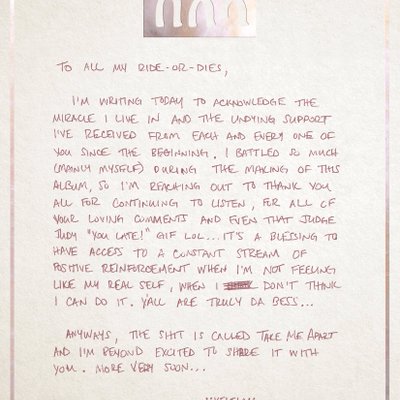 TO ALL MY RIDE-OR-DIES,
I'M WRITING TODAY TO ACKNOWLEDGE THE
MIRACLE I LIVE IN AND THE UNDYING SUPPORT
I'VE RECEIVED FROM EACH AND EVERY ONE OF
YOU SINCE THE BEGINNING. I BATTLED SO MUCH
(MAINLY MYSELF) DURING THE MAKING OF THIS
ALBUM, SO I'M REACHING OUT TO THANK YOU
ALL FOR CONTINUING TO LISTEN, FOR ALL OF
YOUR LOVING COMMENTS AND EVEN THAT JUDGE
JUDY "YOU LATE!" GIF LOL... IT'S A BLESSING TO
HAVE ACCESS TO A CONSTANT STREAM OF
POSITIVE REINFORCEMENT WHEN I'M NOT FEELING
LIKE MY REAL SELF, WHEN I DON'T THINK
I CAN DO IT. Y'ALL ARE TRULY DA BESS...
ANYWAYS, THE SHIT IS CALLED TAKE ME APART
AND I'M BEYOND EXCITED TO SHARE IT WITH
YOU. MORE VERY SOON...